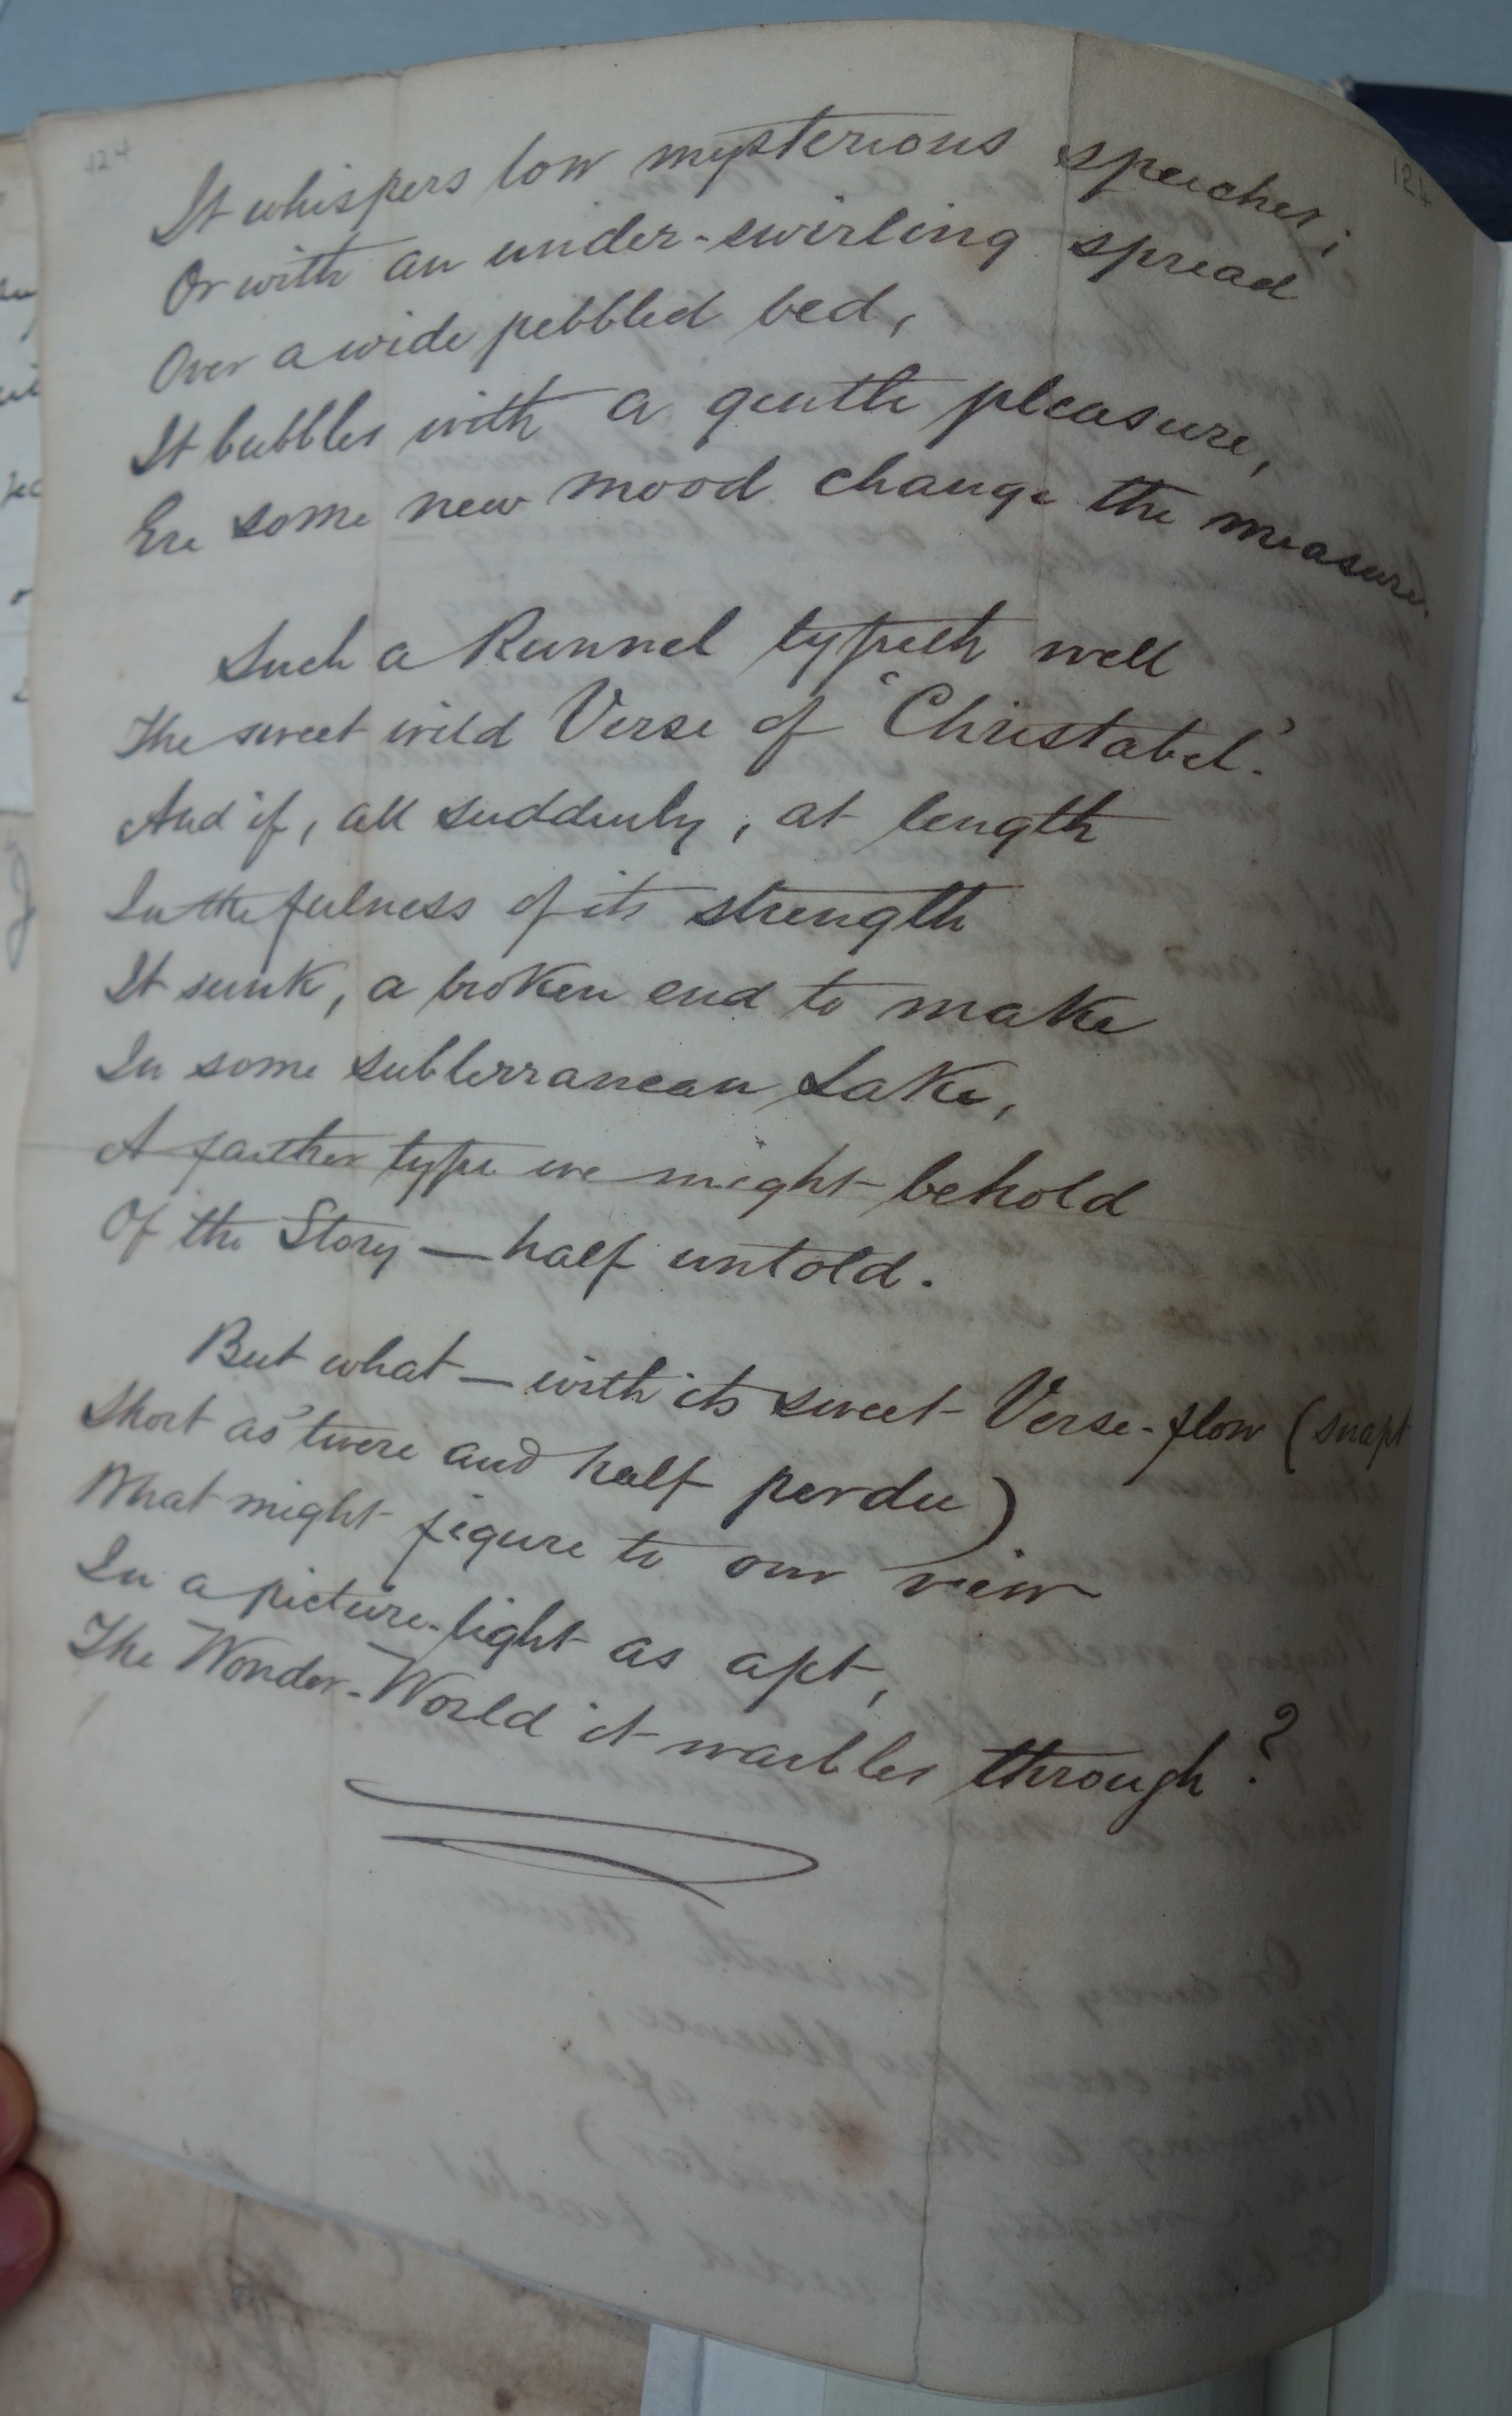 124
124
It whispers low mysterious speeches;
Or with an under-swirling spread
Over a wide pebbled bed,
It bubbles with a gentle pleasure,
Ere some new mood change the measure.
Such a Runnel typeth well
The sweet wild Verse of 'Christabel.'
And if, all suddenly, at length
In the fulness of its strength
It sunk, a broken end to make
In some subterranean Lake,
A farther type we might behold
Of the Story — half untold.
But what — with its sweet Verse-flow (snapt
Short as 'twere and half perdu)
What might figure to our view
In a picture-light as apt,
The Wonder-World it warbles through?